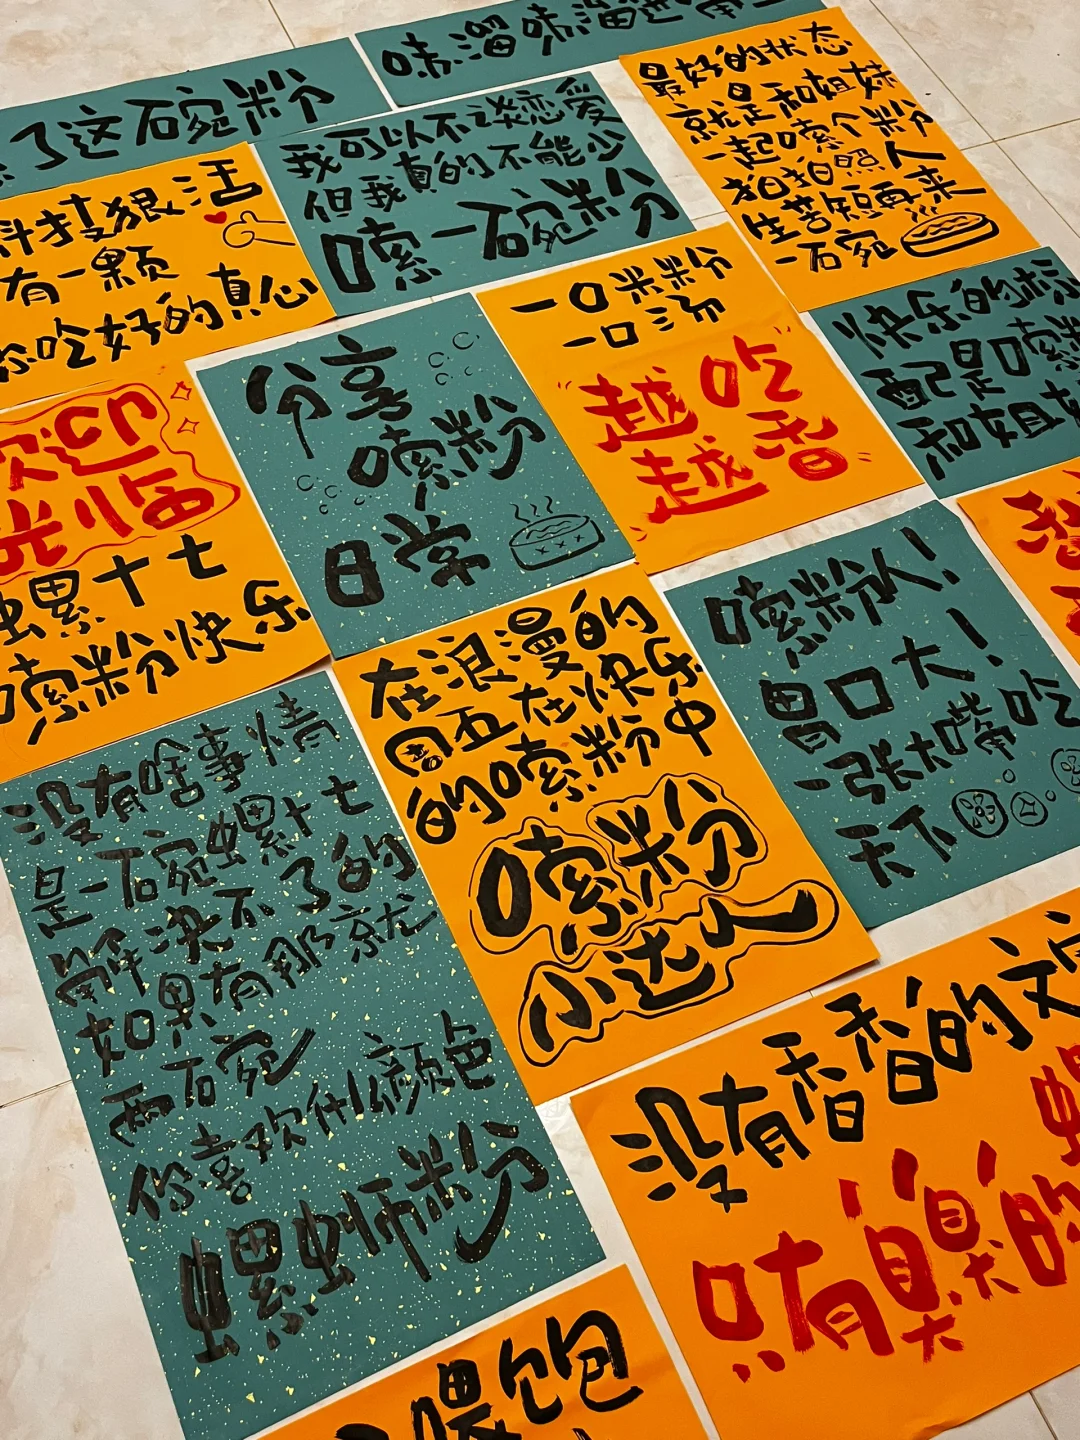 了这碗粉
味溜味溜进
我可以不谈恋爱
但我真的不能少
嗦一碗粉
最好的状态
就是和姐妹
一起嗦个粉
拍拍照人
生苦短再来
一碗
科技狠活
有一颗
你吃好的真心
一口米粉
一口汤
越吃
越香
快乐的标
配是嗦
和姐妹
分享
嗦粉
日常
欢迎
光临
螺十七
嗦粉快乐
嗦粉人!
胃口大!
一张大嘴吃
天下
在浪漫的
周五在快乐
的嗦粉中
嗦粉
小达人
没有啥事情
是一碗螺十七
解决不了的
如果有那就
两碗
你喜欢什么颜色
螺蛳粉
没有香香的文
只有臭臭的
喂饱